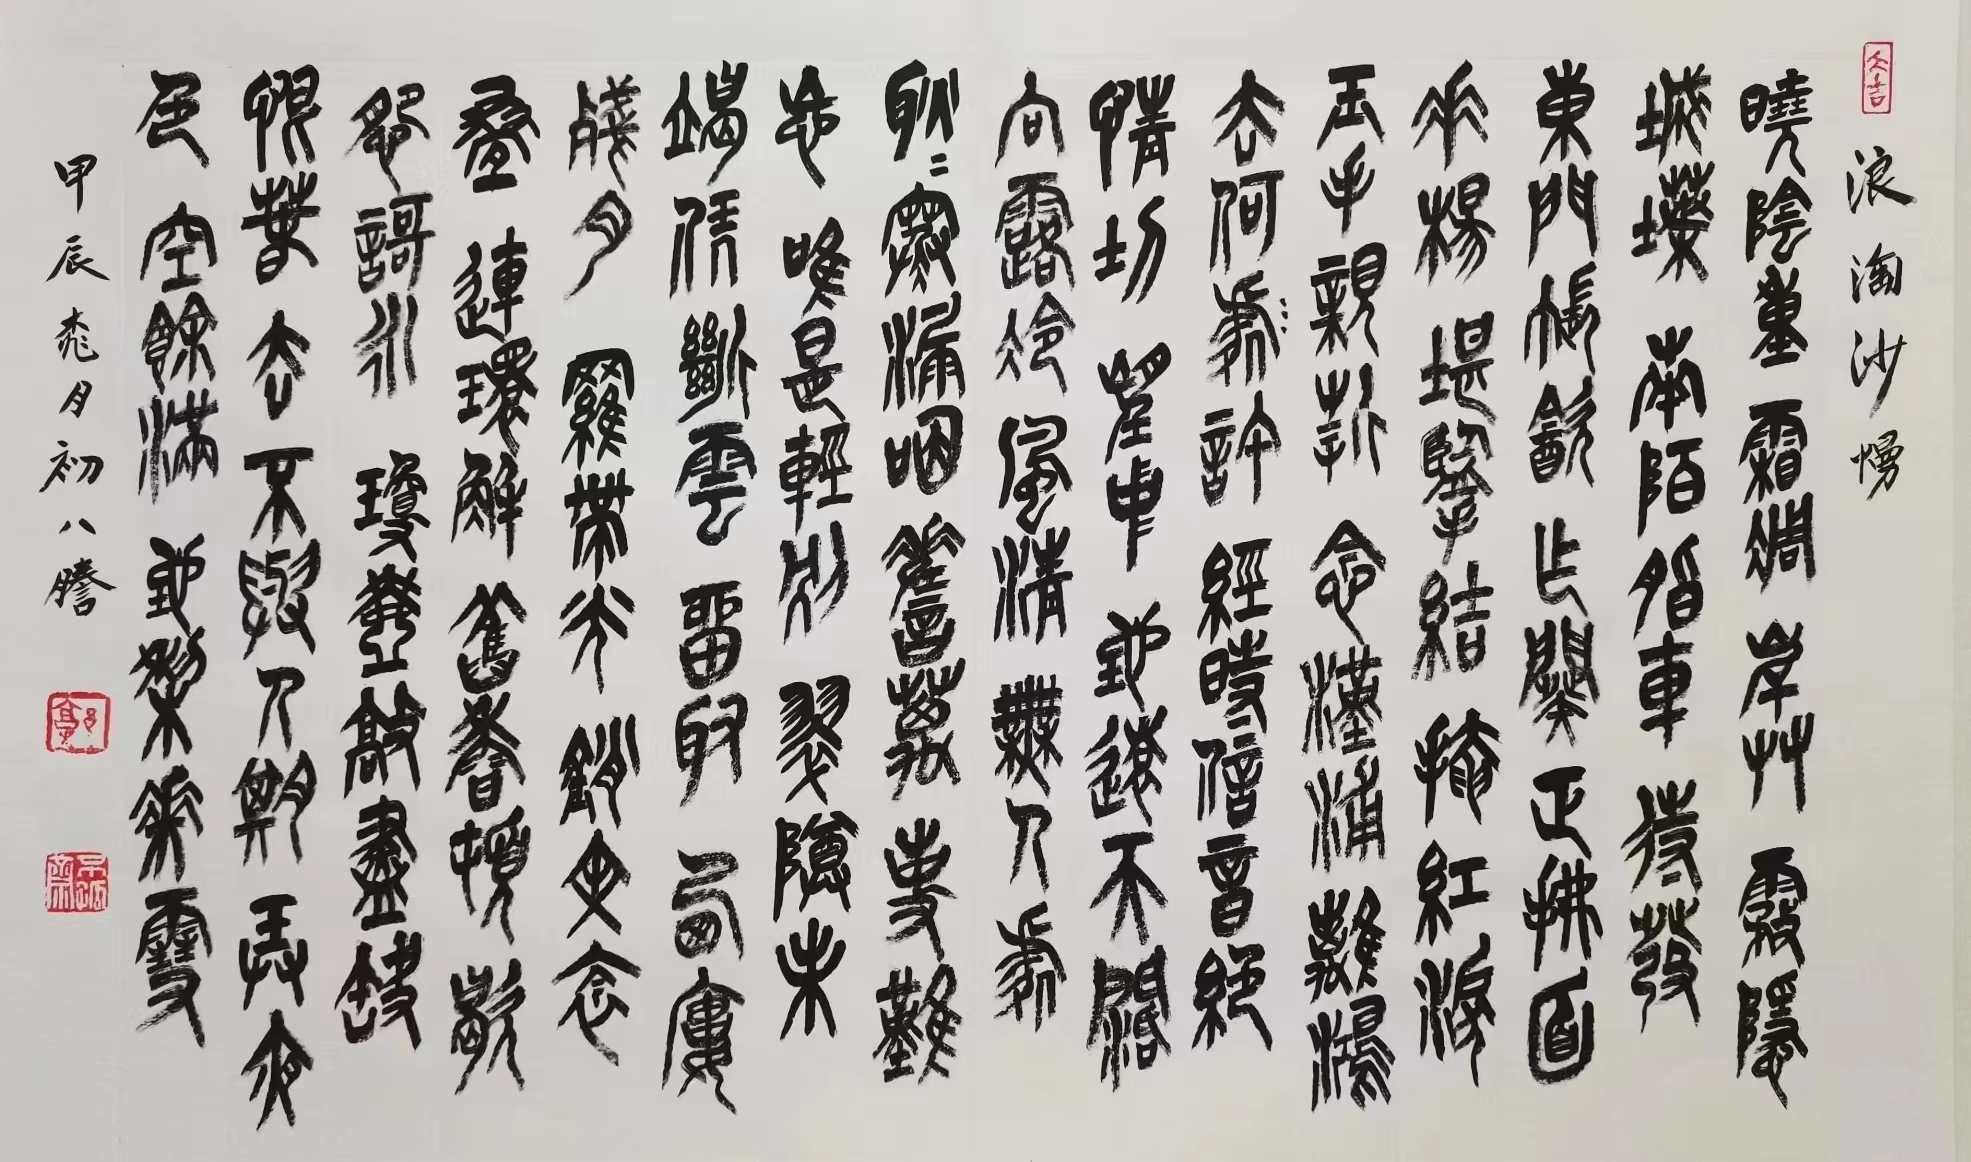 浪淘沙慢
曉陰重霜凋岸艸霧隱
城堞南陌脂車待發
東門帳飲乍闋正拂面
垂楊堪擥結掩紅淚
玉手親折念漢浦離鴻
去何處許經時信音絕
情切望中地遠天闊
向露冷風清無人處
耿〻寒漏咽嗟萬事難
忘唯是輕別翠尊未
竭凭斷雲留取西樓
殘月羅帶光銷文衾
疊連環解舊香頓歇
怨歌永瓊壺敲盡缺
恨春去不與人期弄夜
色空餘滿地梨花雪
甲辰桃月初八謄